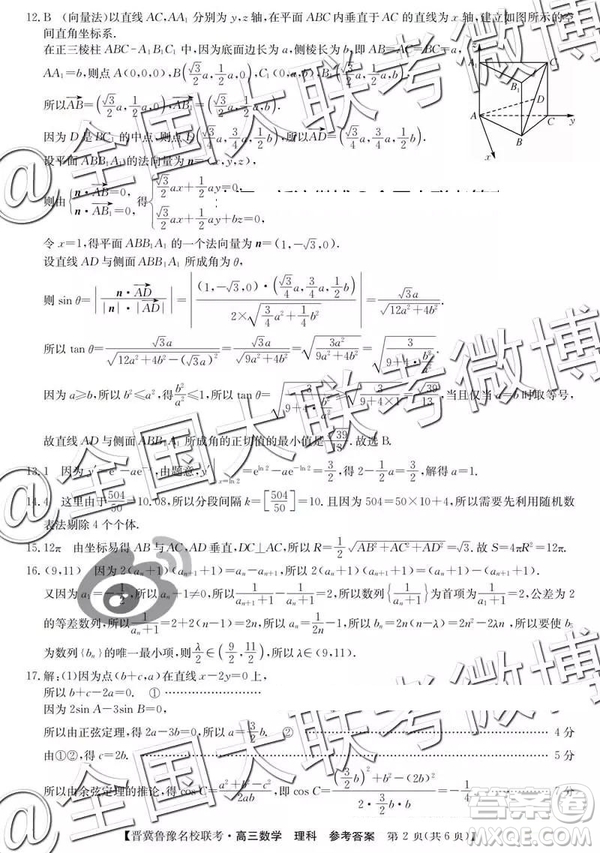 12. B (向量法)以直线 AC, AA₁ 分别为 y, z 轴,在平面 ABC 内垂直于 AC 的直线为 x 轴,建立如图所示的空
间直角坐标系.
在正三棱柱 ABC-A₁B₁C₁ 中,因为底面边长为 a,侧棱长为 b,即 AB=BC=AC=a,
AA₁=b,则点 A(0,0,0),B(√3/2 a, 1/2 a, 0),C₁(0,a,b),B₁(√3/2 a, 1/2 a, b).
因为 D 是 BC₁ 的中点,则点 D(√3/4 a, 3/4 a, 1/2 b),所以AD=(√3/4 a, 3/4 a, 1/2 b).
设平面 ABB₁A₁ 的法向量为 n=(x,y,z),
则由 n·AB=0, n·AB₁=0, 得 √3/2 ax+1/2 ay=0, √3/2 ax+1/2 ay+bz=0.
令 x=1,得平面 ABB₁A₁ 的一个法向量为 n=(1,-√3,0).
设直线 AD 与侧面 ABB₁A₁ 所成角为 θ,
则 sin θ=|n·AD/(|n|·|AD|)|=|(1,-√3,0)·(√3/4 a, 3/4 a, 1/2 b)/(2×√(3/4 a²+1/4 b²))|=√3a/√(12a²+4b²).
所以 tan θ=√3a/√(12a²+4b²-(√3a)²)=√(3a²/(9a²+4b²))
因为 a≥b,所以 b²≤a²,得 b²/a²≤1,所以 tan θ
当 a=b 时取等号,
故直线 AD 与侧面 ABB₁A₁ 所成角的正切值的最小值是 √39/13.故选 B.
13. 1 因为 y′=eˣ-ae⁻ˣ,由题意,y′|x=ln2=e^ln2-ae^-ln2=3/2,得 2-1/2 a=3/2,解得 a=1.
14. 4 这里由于504/50=10.08,所以分段间隔 k=[504/50]=10.且由于 504=50×10+4,所以需要先利用随机数
表法剔除 4 个个体.
15. 12π 由坐标易得 AB 与 AC, AD 垂直,DC⊥AC,所以 R=1/2 √(AB²+AC²+AD²)=√3.故 S=4πR²=12π.
16. (9,11)
所以1/(aₙ+1)=2+2(n-1)=2n,所以 aₙ=1/2n-1,所以 bₙ
为数列{bₙ}的唯一最小项,则 λ/2∈(9/2,11/2),所以 λ∈(9,11).
17. 解:(1)因为点(b+c,a)在直线 x-2y=0 上,
所以 b+c-2a=0. ①
因为 2sin A-3sin B=0,
所以由正弦定理,得 2a-3b=0,所以 a=3/2 b. ② 4 分
由①②,得 c=2b. 5 分
所以由余弦定理的推论,得 cos C=(a²+b²-c²)/2ab,即 cos C=((3/2 b)²+b²-(2b)²)/(2·3/2 b·b)
【晋冀鲁豫名校联考·高三数学 理科 参考答案 第 2 页(共 6 页)】
@全国大联考微博
@全国大联考微博
A₁
B₁
C₁
A
B
C
D
x
y